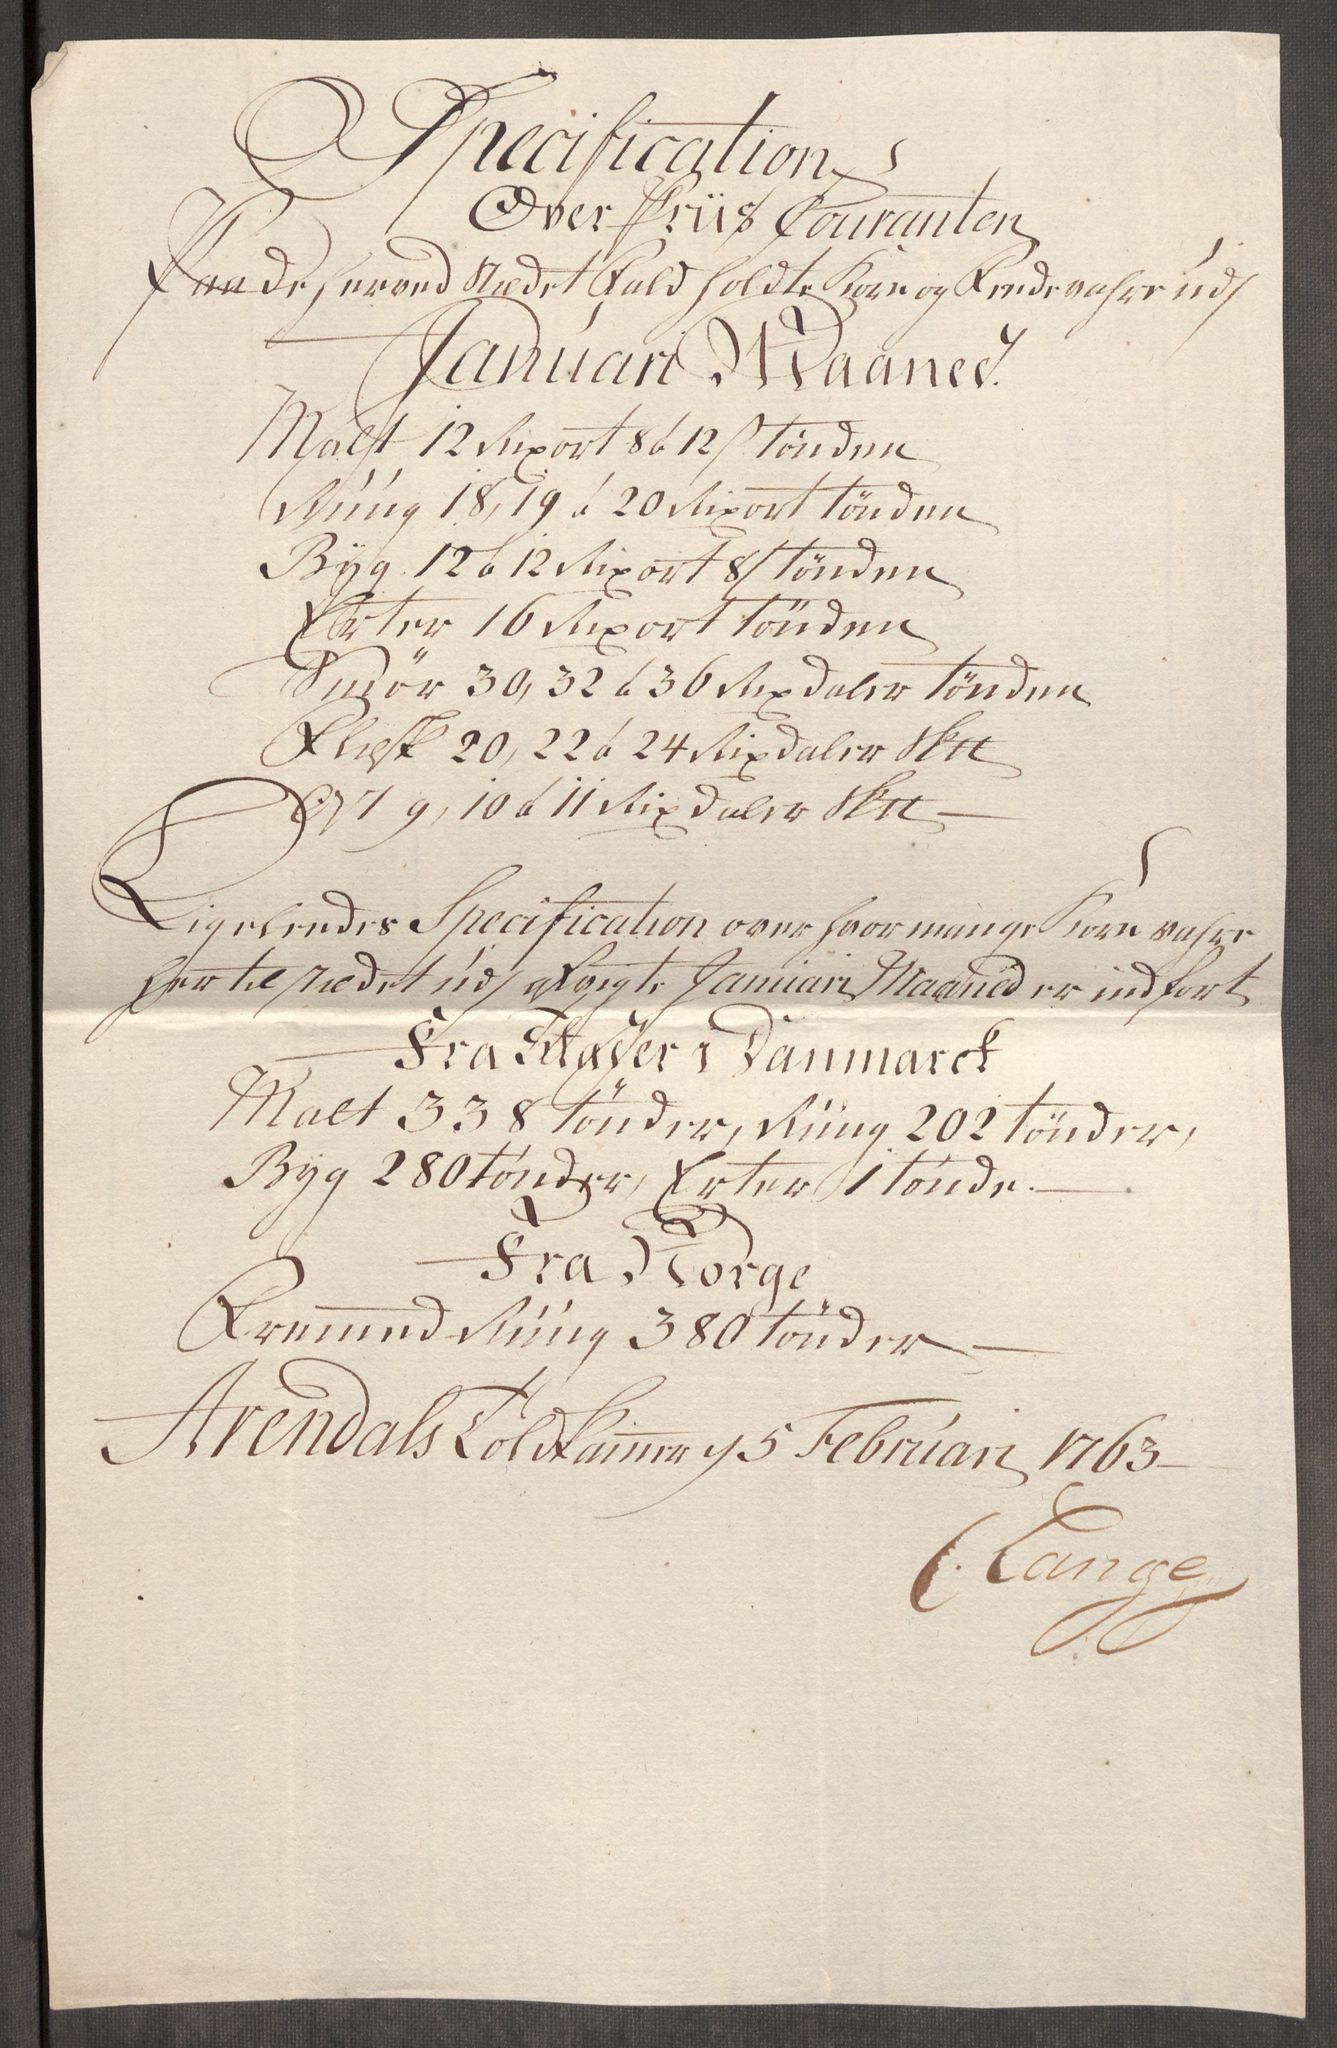 Specification
Over Priis Couranten
Paa de her ved Stædet Fald holdte Korn og Feede vahre udj
Januari Maaned.
Malt 12 Rixort 8 à 12 s tønden
Rúúg 18, 19 à 20 Rixort tønden
Byg 12 à 12 Rixort 8 s tønden
Erter 16 Rixort tønden
Smør 30, 32 à 36 Rixdaler tønden
Flesk 20, 22 à 24 Rixdaler Sktt
Ost 9, 10 à 11 Rixdaler Sktt
Ligeleedes Specification over hvor mange Korn vahre
her til stædet údj Januari Maaned er indført
Fra Danmarck
Malt 338 tønder, Rúúg 202 tønder,
Byg 280 tønder, Erter 1 tønde.
Fra Norge
Fremmed Rúúg 380 tønder
Arendals Toldkammer 5 Februari 1763
C. Lange